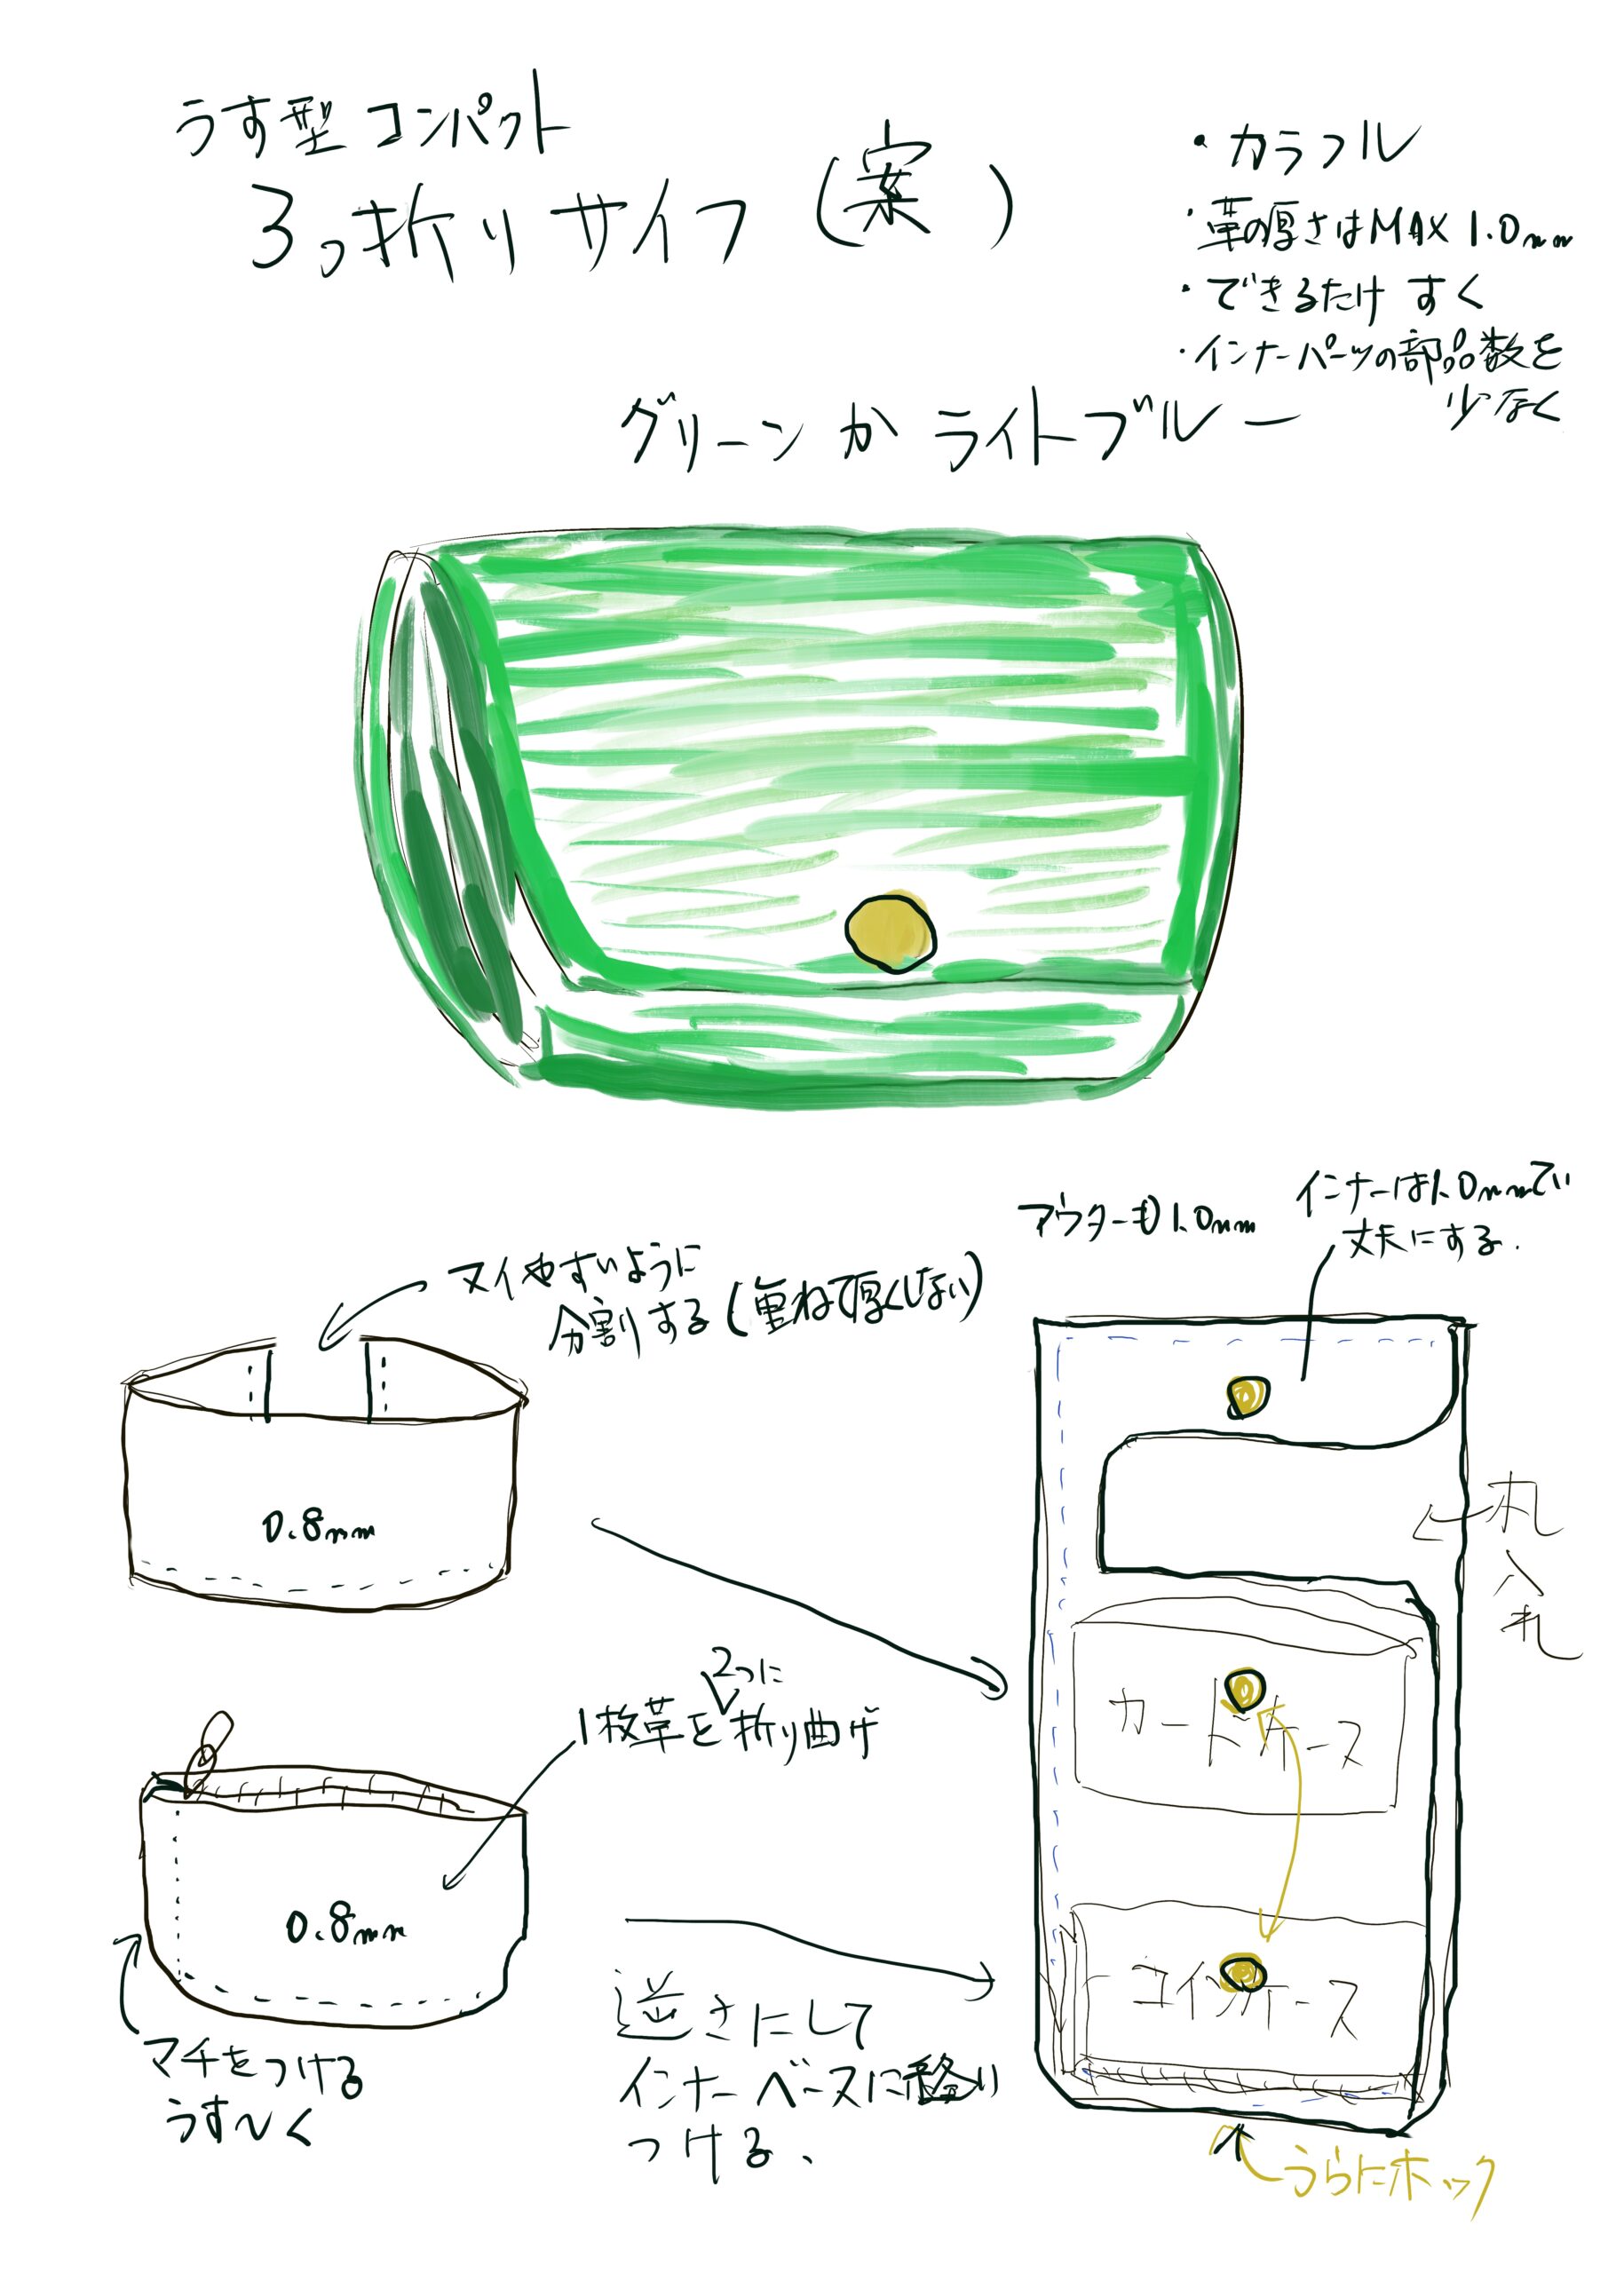 うす型 コンパクト
3つ折りサイフ (案)
・カラフル
・革の厚さはMAX 1.0mm
・できるたけ すく
・インナーパーツの部品数を
少なく
グリーン か ライトブルー
アウターも1.0mm
インナーは1.0mmでい
丈夫にする.
ヌイやすいように
分割する(重ねて厚くしない)
0.8mm
札入れ
カードケース
2つに
1枚革を折り曲げ
0.8mm
コインケース
マチをつける
うす〜く
逆さにして
インナーベースに
つける、
うらにホック